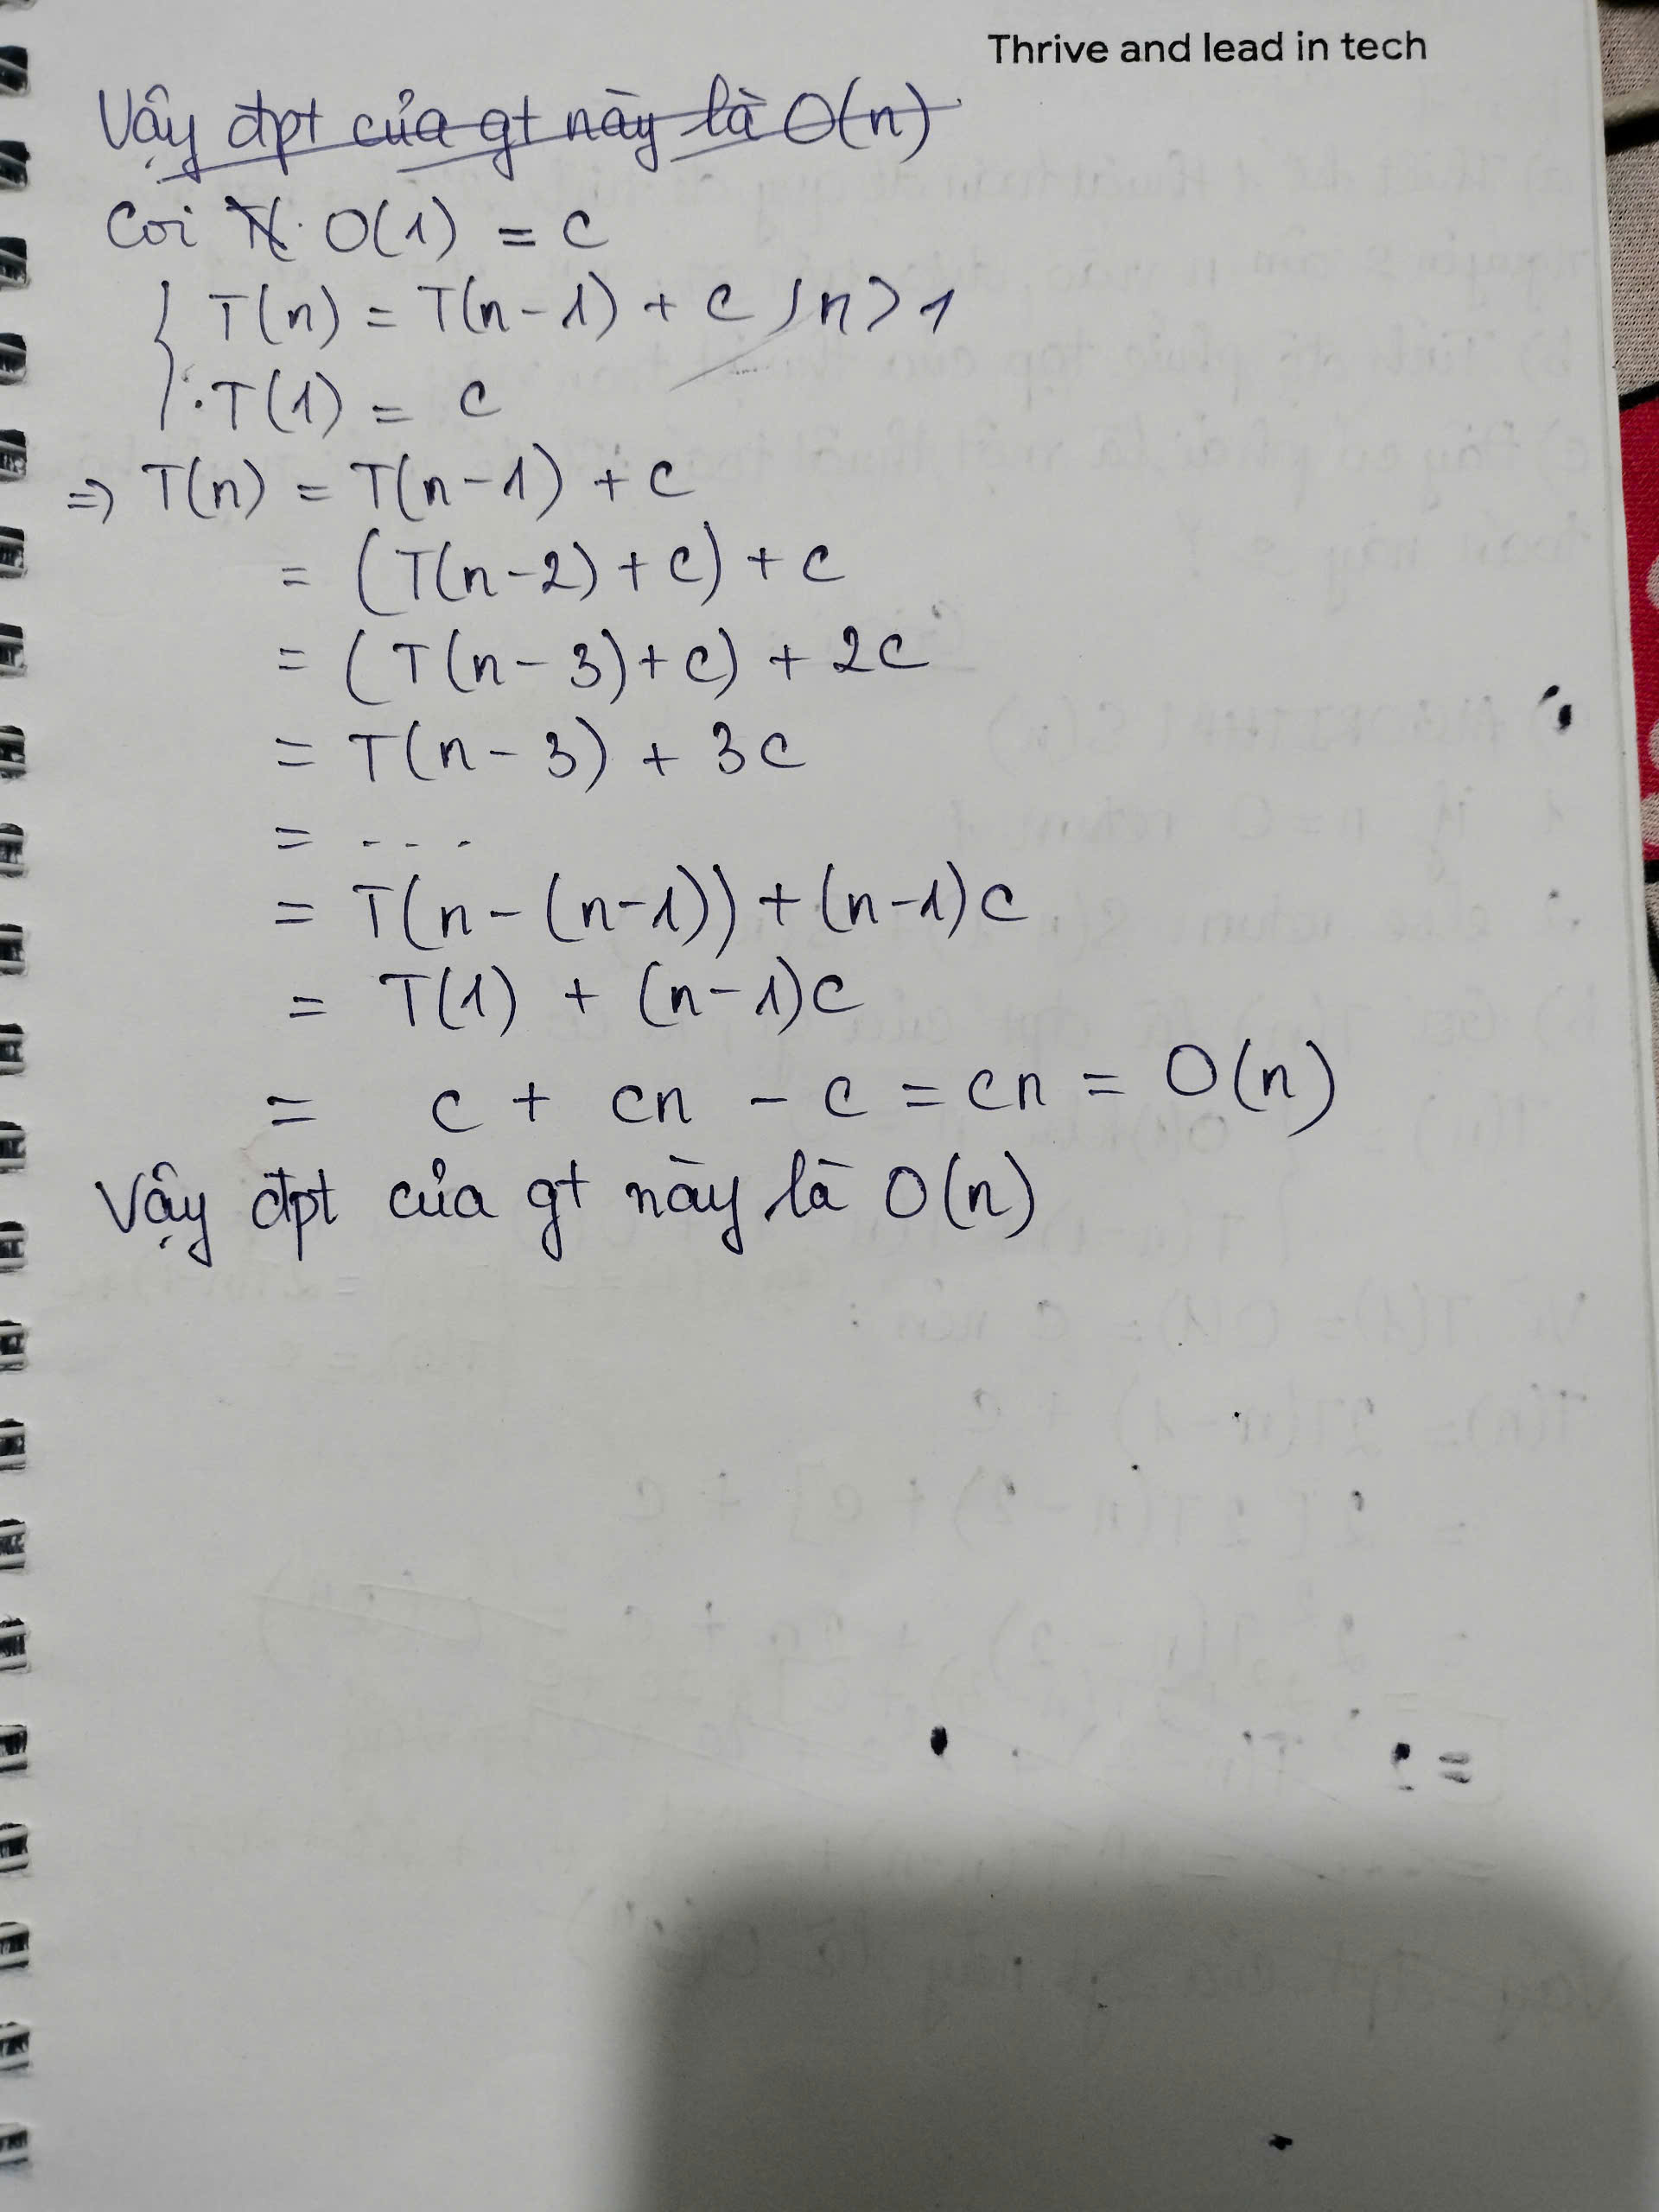 Thrive and lead in tech
Vậy đpt của gt này là O(n)
Coi O(1) = c
T(n) = T(n-1) + c, n > 1
T(1) = c
⇒ T(n) = T(n-1) + c
= (T(n-2) + c) + c
= (T(n-3) + c) + 2c
= T(n-3) + 3c
= ...
= T(n-(n-1)) + (n-1)c
= T(1) + (n-1)c
= c + cn - c = cn = O(n)
Vậy đpt của gt này là O(n)